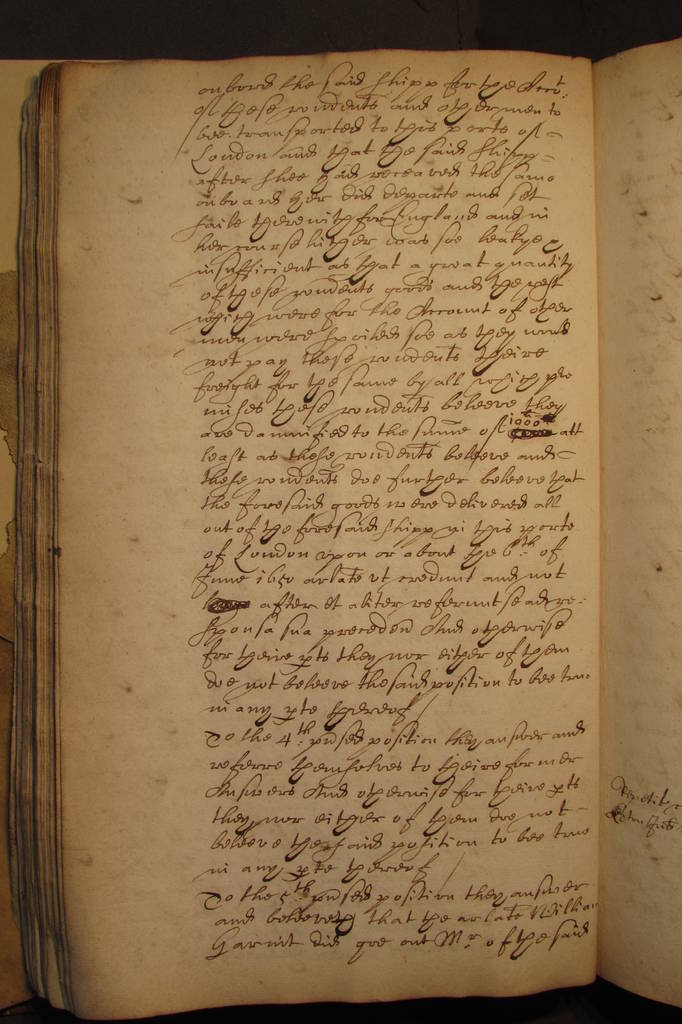 onbord the said shipp for the Acco:t
of these rondents and other men to
bee transported to this porte of
London and that the said shipp
after shee had receaved the same
onboard her did departe and set
saile therewith for England and in
her course hither was soe leakye &
insufficient as that a great quantity
of these rondents goods and the rest
which were for the Account of other
men were spoiled soe as they would
not pay these rondents theire
freight for the same by all which pre
mises these rondents beleeve they
are damnified to the summe of 1000 att
least as these rondents beleeve and
these rondents doe further beleeve that
the foresaid goods were delivered all
out of the foresaid shipp in this porte
of London upon or about the 6th of
June 1650 arlate ut credunt and not
after et aliter referunt se ad re:
sponsa sua preceden And otherwise
for theire pts they nor either of them
doe not beleeve the said position to bee true
in any pte thereof
To the 4th: pnsed position they answer and
referre themselves to theire former
Answers And otherwise for theire pts
they nor either of them doe not
beleeve the said position to bee true
in any pte thereof
To the 5th pnsed position they answer
and beleeve that the arlate William
Garnit did goe out Mr of the said
Repetit